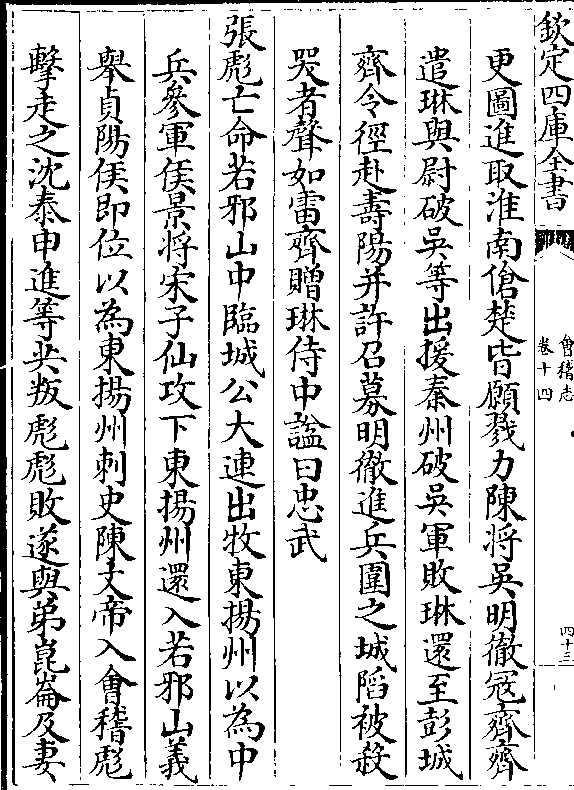 欽定四庫全書
會稽志
卷十四
四十三
更圖進取淮南傖楚皆願戮力陳將吳明徹冦齊齊
遣琳與尉破吳等出援秦州破吳軍敗琳還至彭城
齊令徑赴壽陽并許召募明徹進兵圍之城陷被殺
哭者聲如雷齊贈琳侍中諡曰忠武
張彪亡命若邪山中臨城公大連出牧東揚州以為中
兵參軍侯景將宋子仙攻下東揚州還入若邪山義
舉貞陽侯即位以為東揚州刺史陳文帝入會稽彪
擊走之沈泰申進等共叛彪彪敗遂與弟崑崙及妻